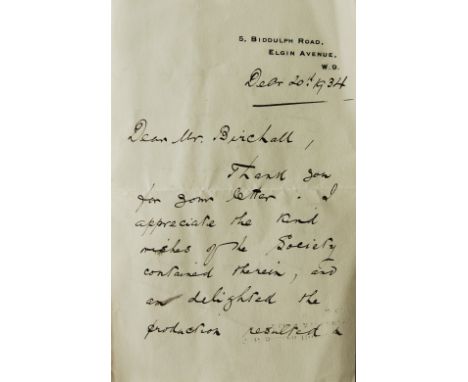 5, BIDDULPH ROAD,
ELGIN AVENUE,
W.9.
Decr 20th 1934
Dear Mr. Birchall,
Thank you
for your letter. I
appreciate the kind
wishes of the Society
contained therein, and
am delighted the
production resulted in